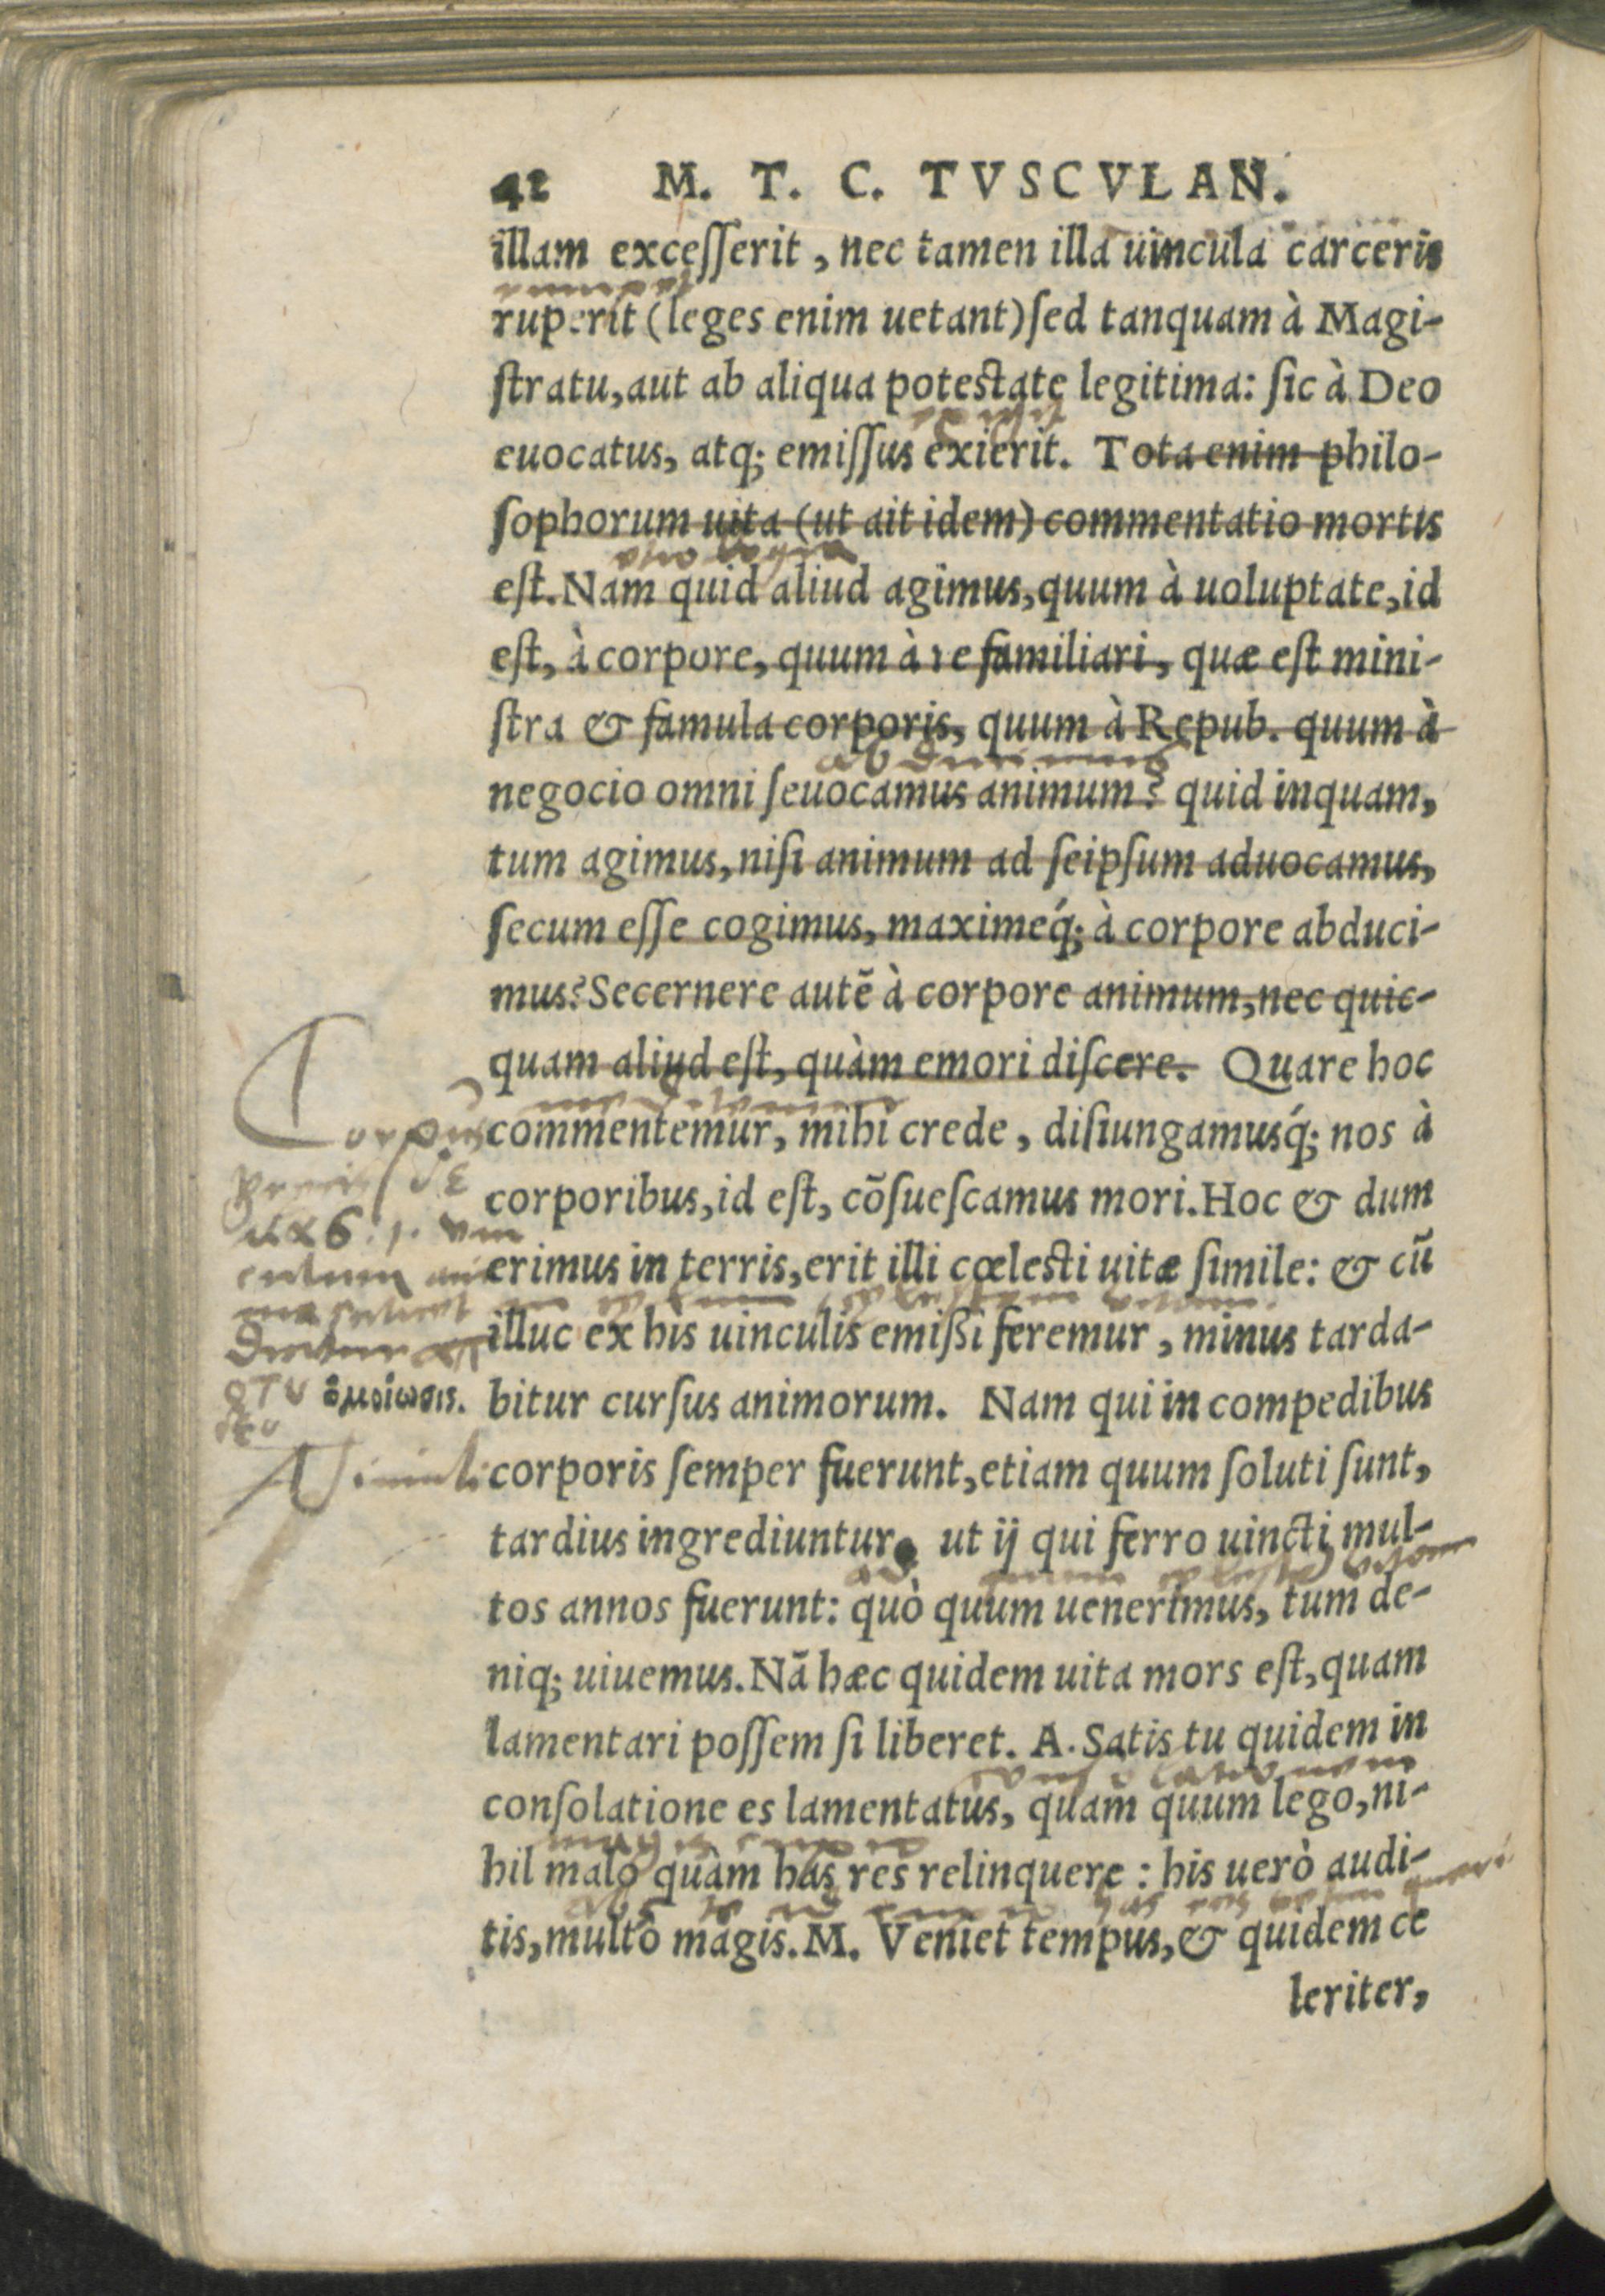 42 M. T. C. TVSCVLAN.
illam excesserit, nec tamen illa uincula carceris
ruperit (leges enim uetant) sed tanquam à Magi-
stratu, aut ab aliqua potestate legitima: sic à Deo
euocatus, atq; emissus exierit. Tota enim philo-
sophorum uita (ut ait idem) commentatio mortis
est. Nam quid aliud agimus, quum à uoluptate, id
est, à corpore, quum à re familiari, quæ est mini-
stra & famula corporis, quum à Repub. quum à
abducimus
negocio omni seuocamus animum? quid inquam,
tum agimus, nisi animum ad seipsum aduocamus,
secum esse cogimus, maximeq́; à corpore abduci-
mus? Secernere autē à corpore animum, nec quic-
quam aliud est, quàm emori discere. Quare hoc
Corpus
commentemur, mihi crede, disiungamusq́; nos à
corporibus, id est, cōsuescamus mori. Hoc & dum
erimus in terris, erit illi cœlesti uitæ simile: & cū
illuc ex his uinculis emissi feremur, minus tarda-
ὁμοίωσις.
bitur cursus animorum. Nam qui in compedibus
corporis semper fuerunt, etiam quum soluti sunt,
tardius ingrediuntur, ut ij qui ferro uincti mul-
tos annos fuerunt: quò quum uenerimus, tum de-
niq; uiuemus. Nā hæc quidem uita mors est, quam
lamentari possem si liberet. A. Satis tu quidem in
consolationem
consolatione es lamentatus, quam quum lego, ni-
hil malo quàm has res relinquere: his uerò audi-
tis, multò magis. M. Veniet tempus, & quidem ce
leriter,